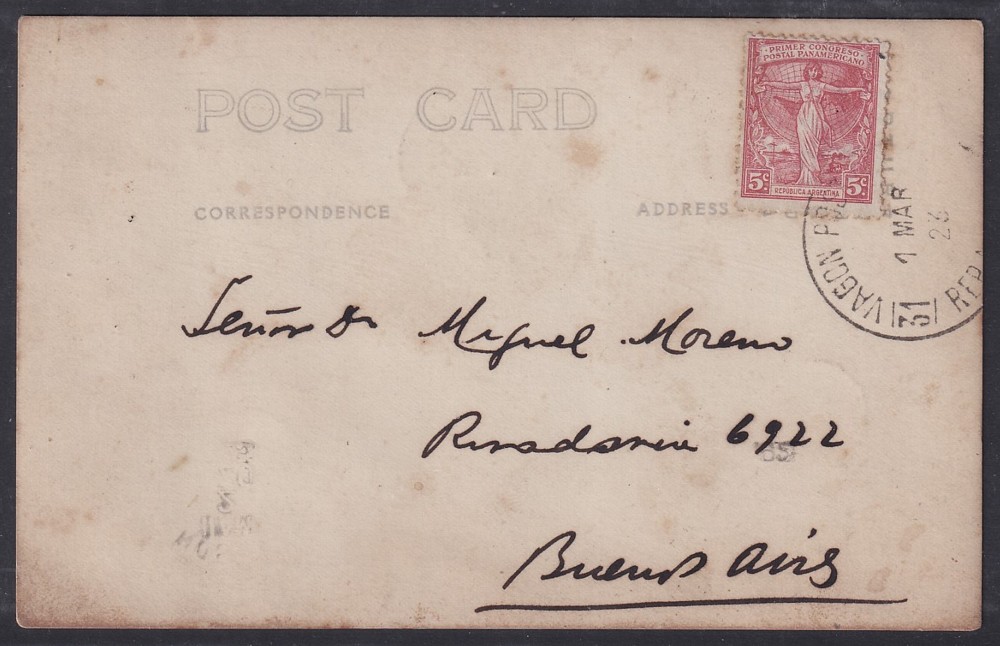 POST CARD
PRIMER CONGRESO
POSTAL PANAMERICANO
5c. 5c.
REPÚBLICA ARGENTINA
CORRESPONDENCE
ADDRESS
VAGON
1 MAR
23
31
REP.
Señor Dr Miguel Moreno
Rivadavia 6922
Buenos Aires